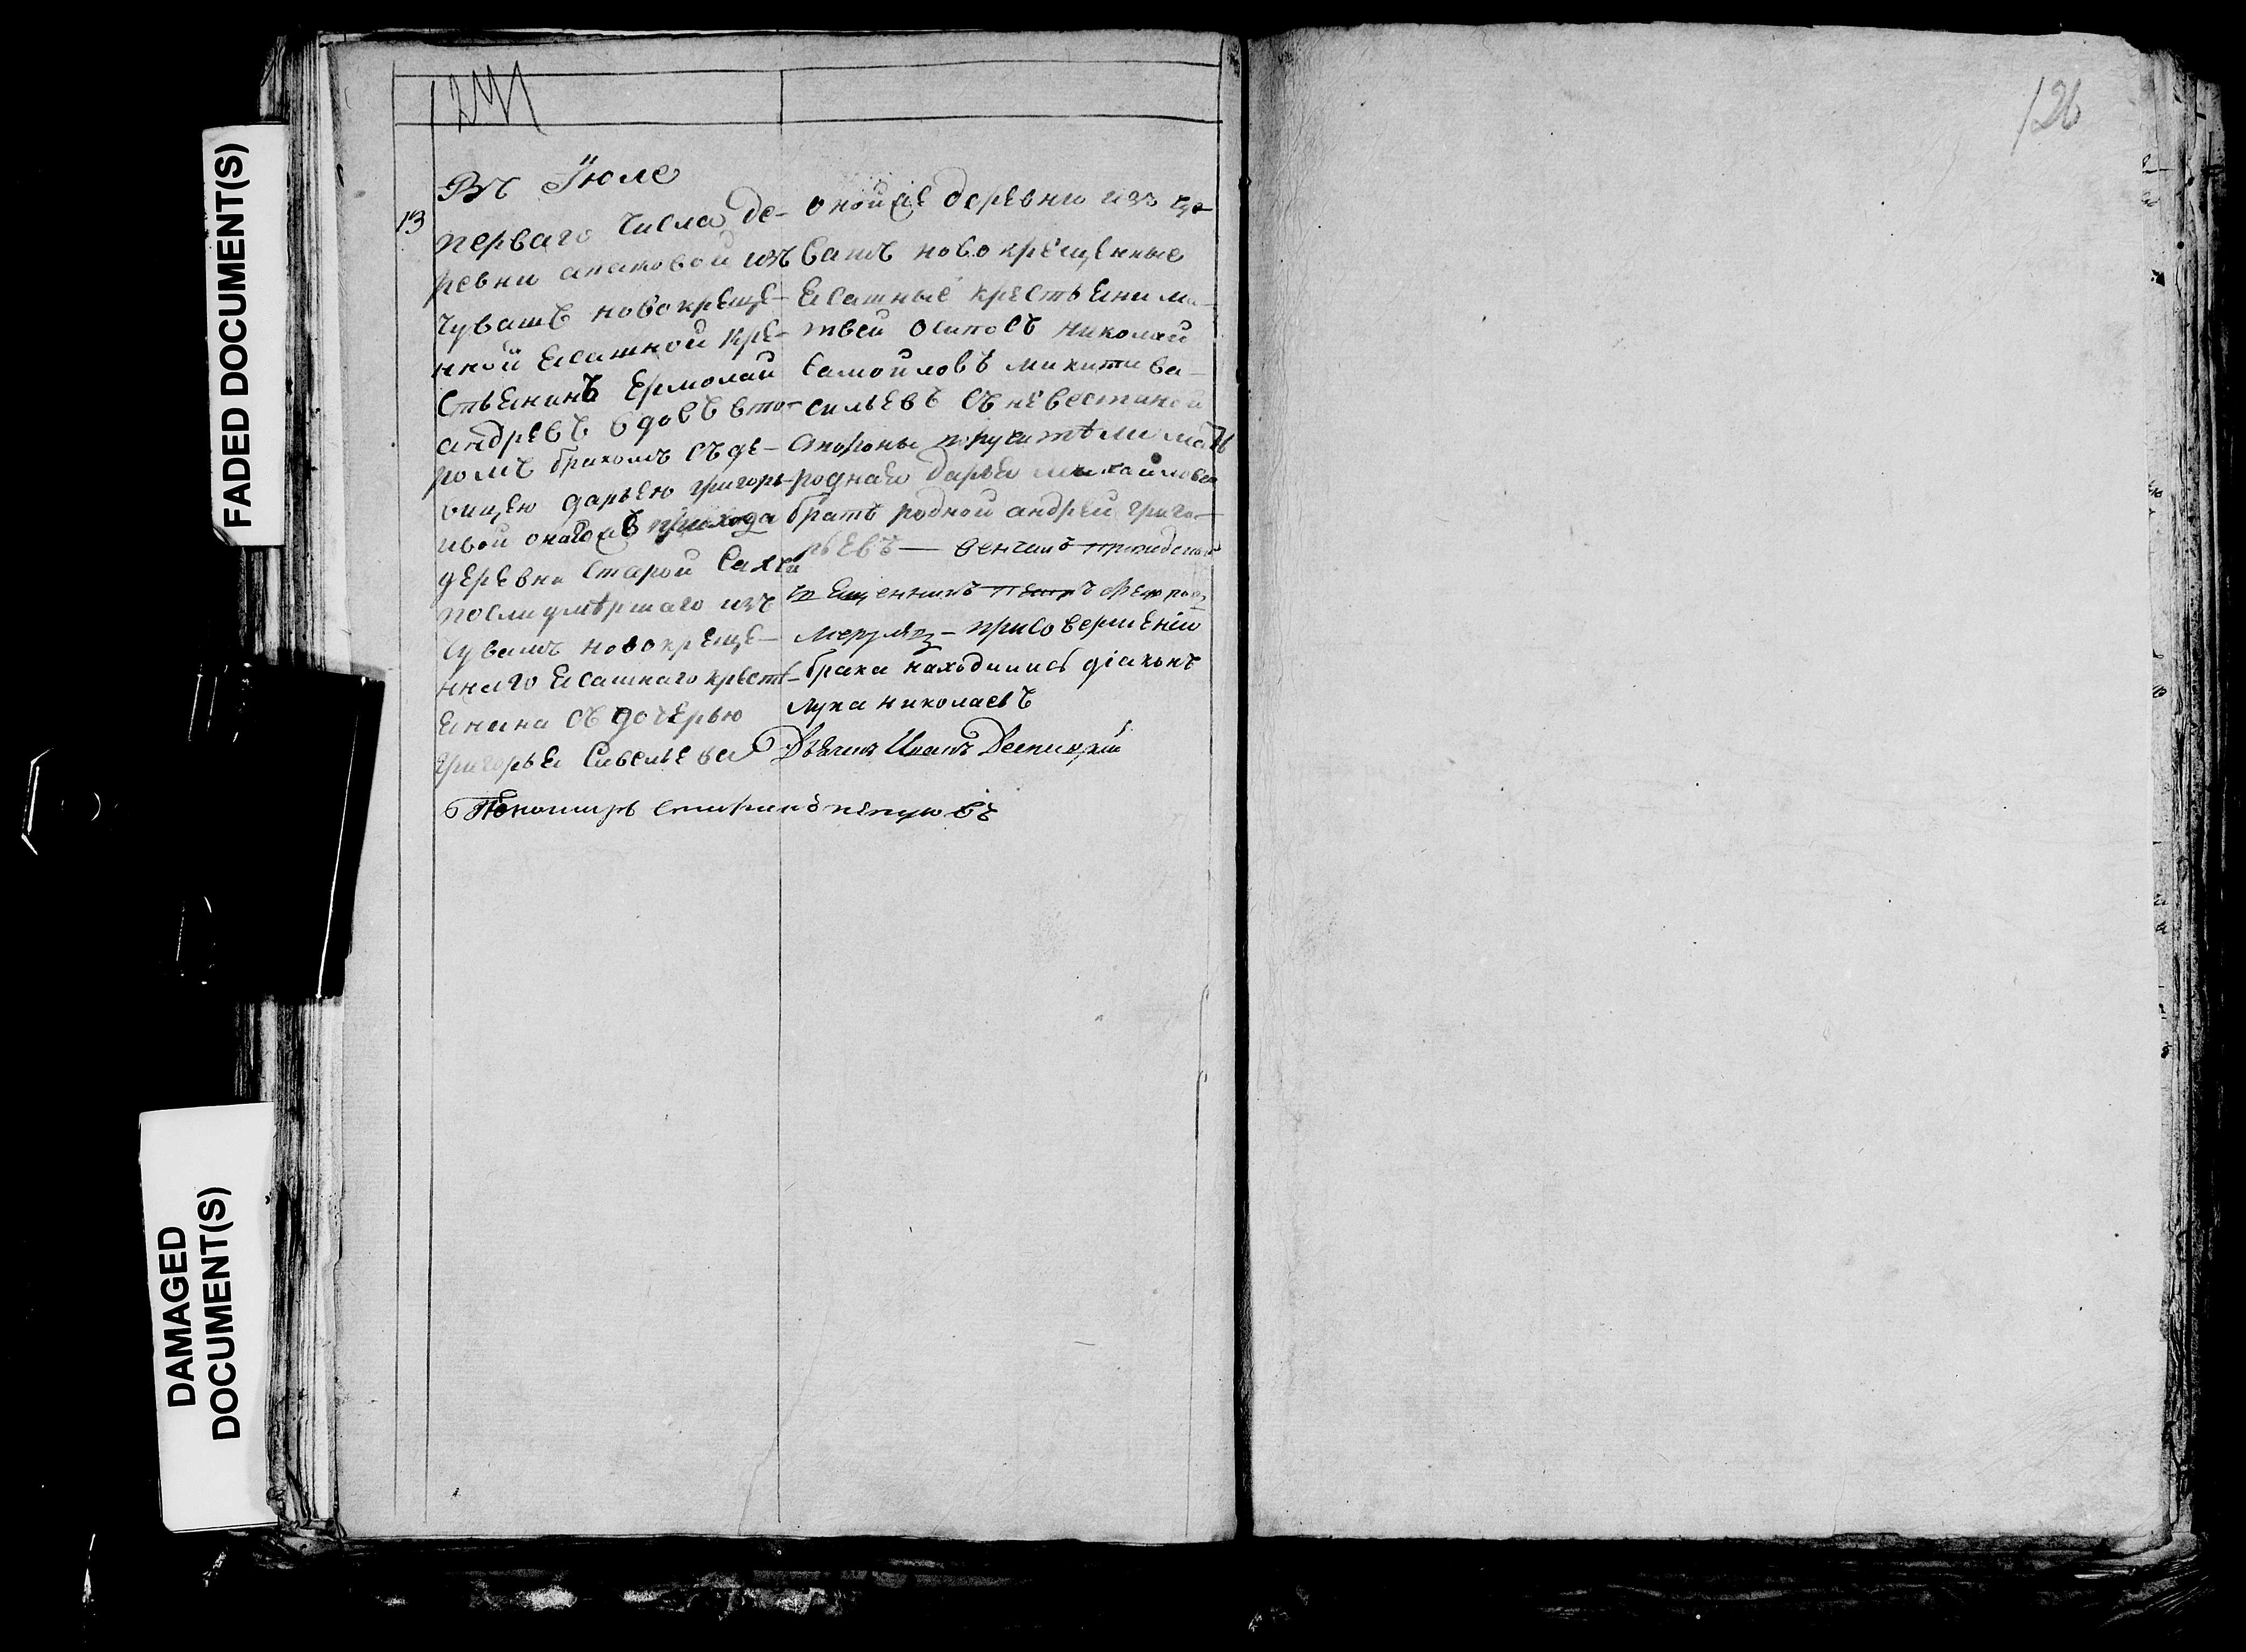 FADED DOCUMENT(S)
DAMAGED DOCUMENT(S)
126
Въ Іюле
13
перваго числа де-
ревни апаковой изъ
чувашъ новокреще-
нной ясашной кре-
стьянинъ Ермолай
андреевъ вдовъ вто-
ромъ бракомъ съ де-
вицею дарьею григорь-
ивой онагожъ прихода
деревни Старой
после умѣршаго изъ
чувашъ новокреще-
ннаго ясашнаго кресть-
янина съ дочерью
григорья савельева
оной же деревни изъ чу-
вашъ новокрещенные
ясашные крестьяни ма-
твей осиповъ николай
Самойловъ микити ва-
сильевъ съ невестиной
стороны поручители мать
родная дарья михайлова
братъ родной андрей григо-
рьевъ — венчалъ приходской
священникъ Петръ
присовершеніи
брака находились діаконъ
лука николаевъ
Дьячекъ Иванъ
Пономарь